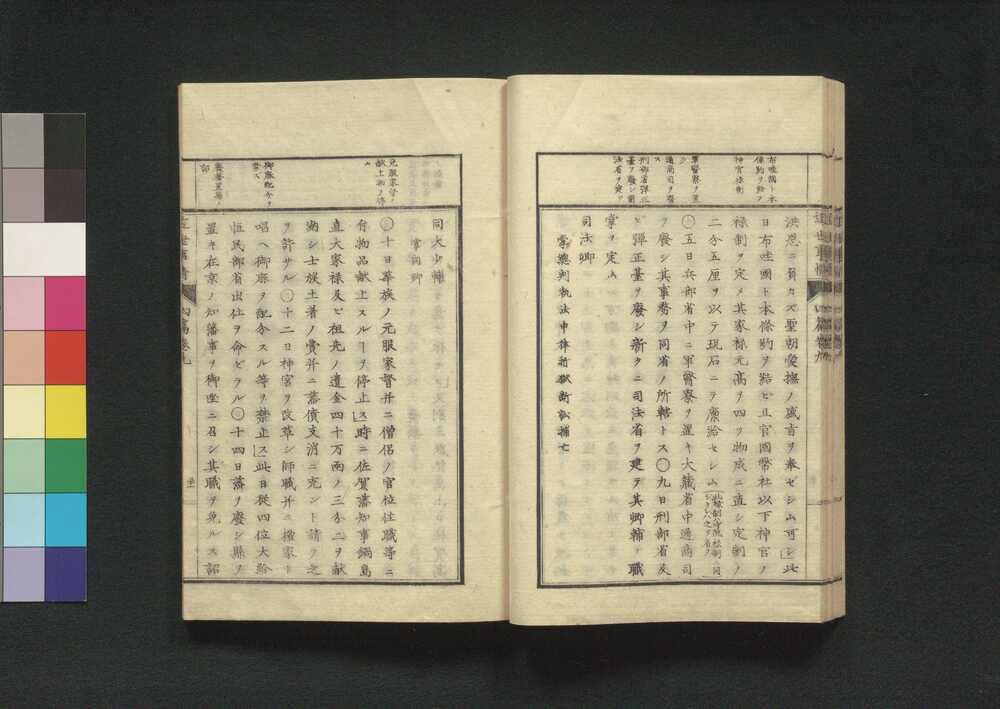 布哇國ト本
條約ヲ結フ
神官祿制
軍醫寮ヲ置
通商司ヲ廢
ス
刑部省彈正
臺ヲ廢シ司
法省ヲ定ム
洪恩ニ負カス聖朝愛撫ノ盛旨ヲ奉セシム可シ此
日布哇國ト本條約ヲ結ヒ且官國幣社以下神官ノ
祿制ヲ定メ其家祿元高ヲ四ツ物成ニ直シ定制ノ
二分五厘ヲ以テ現石ニテ廩給セシム
〇五日兵部省中ニ軍醫寮ヲ置キ大藏省中通商司
ヲ廢シ其事務ヲ同省ノ所轄トス〇九日刑部省及
ヒ彈正臺ヲ廢シ新タニ司法省ヲ建テ其卿輔ノ職
掌ヲ定ム
司法卿
掌總判執法申律折獄斷訟捕亡
元服家督ノ
献上物ヲ停
ム
御麻配分ヲ
禁ス
同大少輔
掌同卿
〇十日華族ノ元服家督并ニ僧侶ノ官位住職等ニ
付物品献上スルヿヲ停止ス時ニ佐賀藩知事鍋島
直大家祿及ヒ祖先ノ遺金四十万兩ノ三分二ヲ献
納シ士族土着ノ費并ニ藩債支消ニ充ント請フ之
ヲ許サル〇十二日神宮ヲ改革シ師職并ニ檀家ト
唱ヘ御麻ヲ配分スル等ヲ禁止ス此日從四位大給
恒民部省出仕ヲ命セラル〇十四日藩ヲ廢シ縣ヲ
置キ在京ノ知藩事ヲ御座ニ召シ其職ヲ免ルス詔